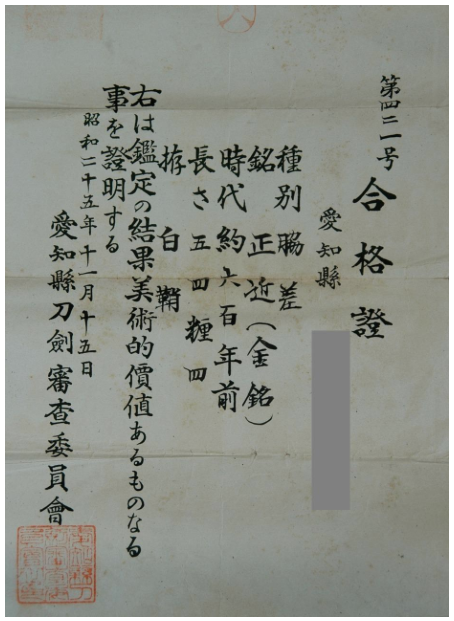 第四二一号
合格證
愛知縣
種別脇差
銘正近（金銘）
時代約六百年前
長さ五四糎四
拵白鞘
右は鑑定の結果美術的價値あるものなる
事を證明する
昭和二十五年十一月十五日
愛知縣刀劍審査委員會